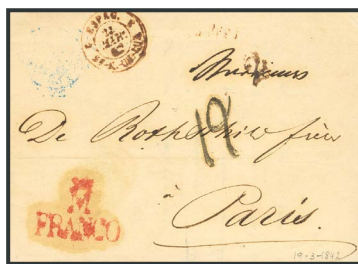 Messieurs
De Rothschild frères
19
à
Paris.
M
FRANCO
19-3-1842